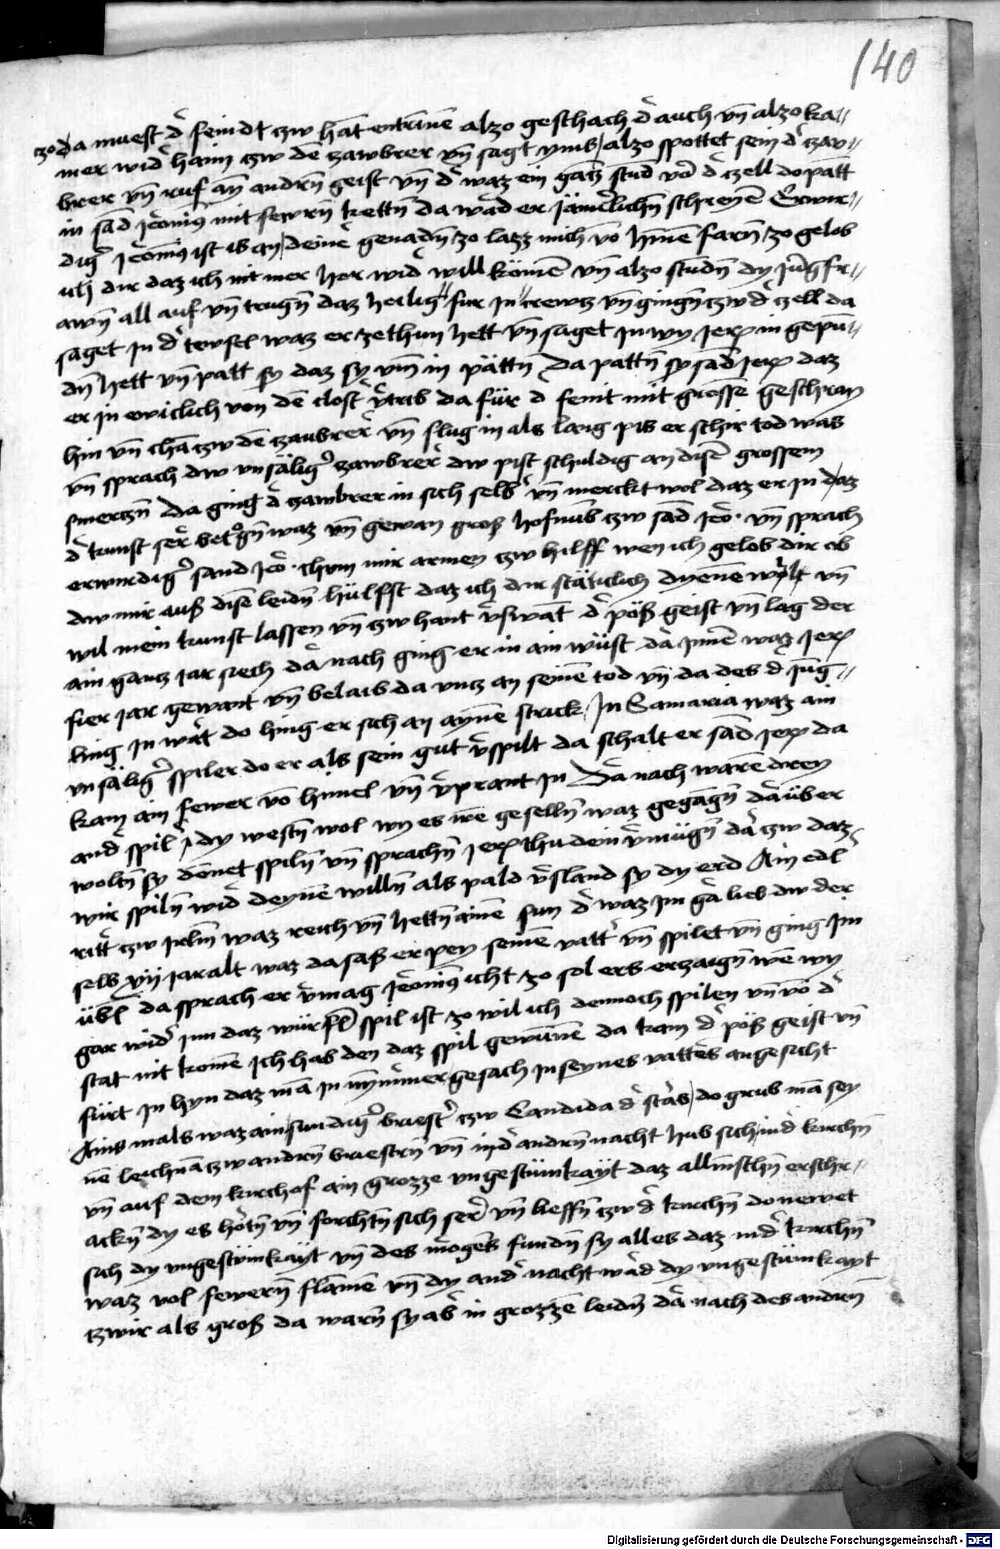 140
zo da muest d̕ feindt czw hāt entrinnē alzo geschach d̕ auch vn̄ alzo ka〃
mer wid̕ haim czw dē zawbrer vn̄ sagt yms alzo spottet sein d̕ zau〃
brer vn̄ ruf an̄ andrn̄ geist vn̄ d̕ waz ein gātz stund vō d̕ czell do patt
in sād Jeronim9 mit fewrn̄ kettn̄ da wād er Jāmerlichn̄ schreyen̄ Erwir〃
dig̕ Jeronim9 ist is an deinē genadn̄ zo lazz mich vō hinnē farn̄ zo gelob
ich dir daz ich nit mer her wid̕ will kömen̄ vn̄ alzo stundn̄ dy jūgfr〃
awn̄ all auf vn̄ trugn̄ daz heilig fur in crewtz vn̄ gingn̄ czw d̕ czell da
saget in d̕ tewfel waz er ze thun hett vn̄ saget in wy Jero in gepū〃
dn̄ hett vn̄ patt sy daz sy vm̄ in pättn̄ Da pattn̄ sy sād Jero daz
er in ewiclich von dē closter̕ trib da für d̕ feint mit grossē geschray
hin vn̄ chā czw dē zaubrer̕ vn̄ slug in als lang pis er schir tod was
vn̄ sprach dw vnsälig̕ zawbrer̕ dw pist schuldig an disē grossem
smerczn̄ Da ging d̕ zawbrer in sich selb̕ vn̄ merckt wol daz er in daz
d̕ kunst ser̕ betrogn̄ waz vn̄ gewan groß hofnub czw sād Jero· vn̄ sprach
erwirdig̕ sand Jero· chum mir armen czw hilff wen ich gelob dir ob
dw mir auß disē leidn̄ hülffst daz ich dir stäticlich dyenē wöll vn̄
wil mein kunst lassen vn̄ czw hant v̕swāt d̕ pöß geist vn̄ lag der
ain gancz jar siech dā nach ging er in ain wüst dā jnnē waz Jero
fier jar gewant vn̄ belaib da vncz an seinē tod vn̄ da des d̕ jūg〃
ling in wāt do hing er sich an aynē strick / In Samaria waz ain
vnsälig̕ spiler do er als sein gut v̕spilt da schalt er sād Jero da
kam ain fewer vō himel vn̄ v̕prant in Dā nach warē drey
and̕ spil̕ dy westn̄ wol wy es wē geselln̄ waz gegāgn̄ dā über
woltn̄ sy dennet spiln̄ vn̄ sprachn̄ Jero thu dein v̕mügn̄ dā czw daz
wir spiln̄ wid̕ deynē willn̄ als pald v̕sland sy dy erd Ain edl̕
ritt̕ czw jrlm̄ waz reich vn̄ hettn̄ ainē sun d̕ waz im gā lieb dw der
selb xvij jar alt waz da saß er pey seinē vatt̕ vn̄ spilet vn̄ ging im
übl̕ da sprach er v̕mag Jeronim9 icht zo sol ers erzaign̄ wē wy
gar wid̕ im daz würfl̕ spil ist zo wil ich dennoch spilen vn̄ vō d̕
stat nit komē Ich hab den daz spil gewunnē da kam d̕ pöß geist vn̄
fürt in hyn daz mā in nym̄mer gesach in seynes vattes angesicht
Ains mals waz ain sundig̕ briest̕ czw Candida d̕ starb do grub mā sey
nē leichnā czw andrn̄ briestrn̄ vn̄ in d̕ andrn̄ nacht hub sich in d̕ kirchn̄
vn̄ auf dem kirchof ain grozze vngestümkayt daz all menschn̄ erschr〃
ackn̄ dy es hörtn̄ vn̄ forchtn̄ sich ser vn̄ lieffn̄ czw d̕ kirchn̄ do newet
sich dy vngestümkayt vn̄ des mōgēs fundn̄ sy alles daz in d̕ kirchn̄
waz vol fewern̄ flamē vn̄ dy and̕ nacht wād dy vngestümkayt
czwir als groß da warn̄ sy ab̕ in grozzē leidn̄ dā nach des andrn̄
Digitalisierung gefördert durch die Deutsche Forschungsgemeinschaft - DFG